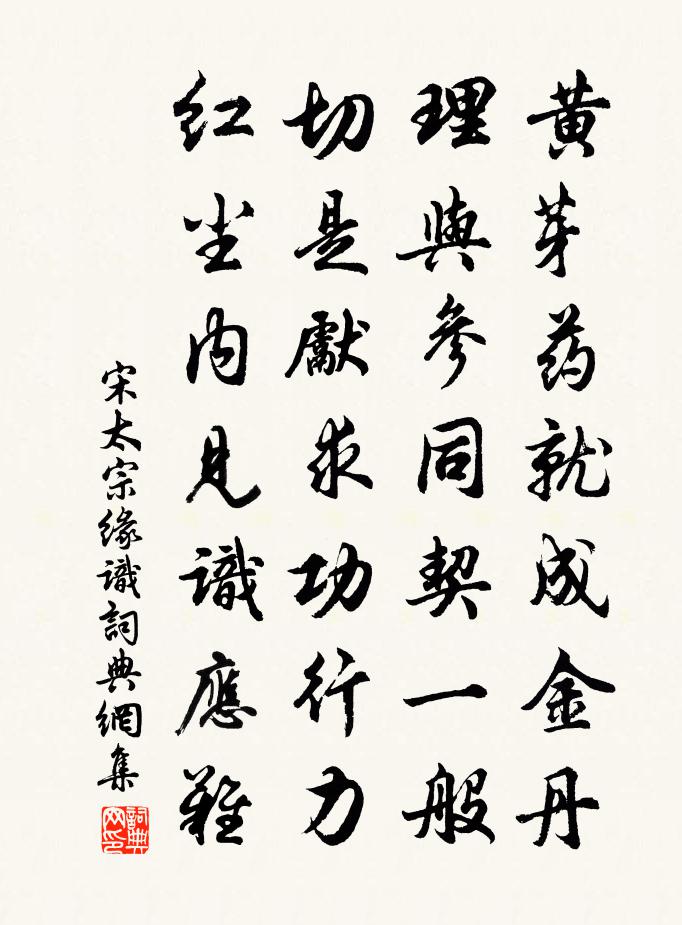 黄芽药就成金丹
理與參同契一般
切是獻求功行力
紅尘内見識應難
宋太宗緣識詞典網集
詞典网印